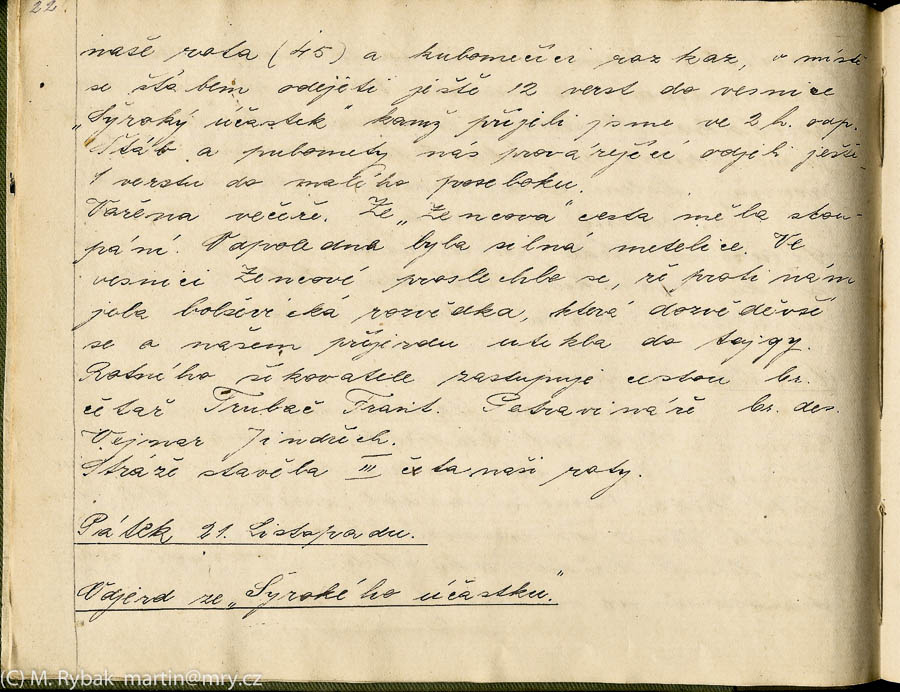 22
naše rota (45) a kulometčíci rozkaz, v místě
se štábem odejeti ještě 12 verst do vesnice
„Sýroký účastek" kamž přijeli jsme ve 2 h. odp.
Štáb a pulomety nás provázející odjeli ješ
1 verstu do malého poselku.
Vařena večeře. Ze „Žencova" cesta měla stou-
pání. Odpoledne byla silná metelice. Ve
vesnici Žencově proslechlo se, že proti nám
jela bolševická rozvědka, která dozvěděvší
se o našem příjezdu utekla do tajgy.
Rotného šikovatele zastupuje cestou br.
četař Trubač Frant. Potravináře br. des.
Vejmar Jindřich.
Stráže stavěla III četa naší roty.
Pátek 21. Listopadu.
Odjezd ze „Sýrokého účastku".
(C) M. Rybak martin@mry.cz